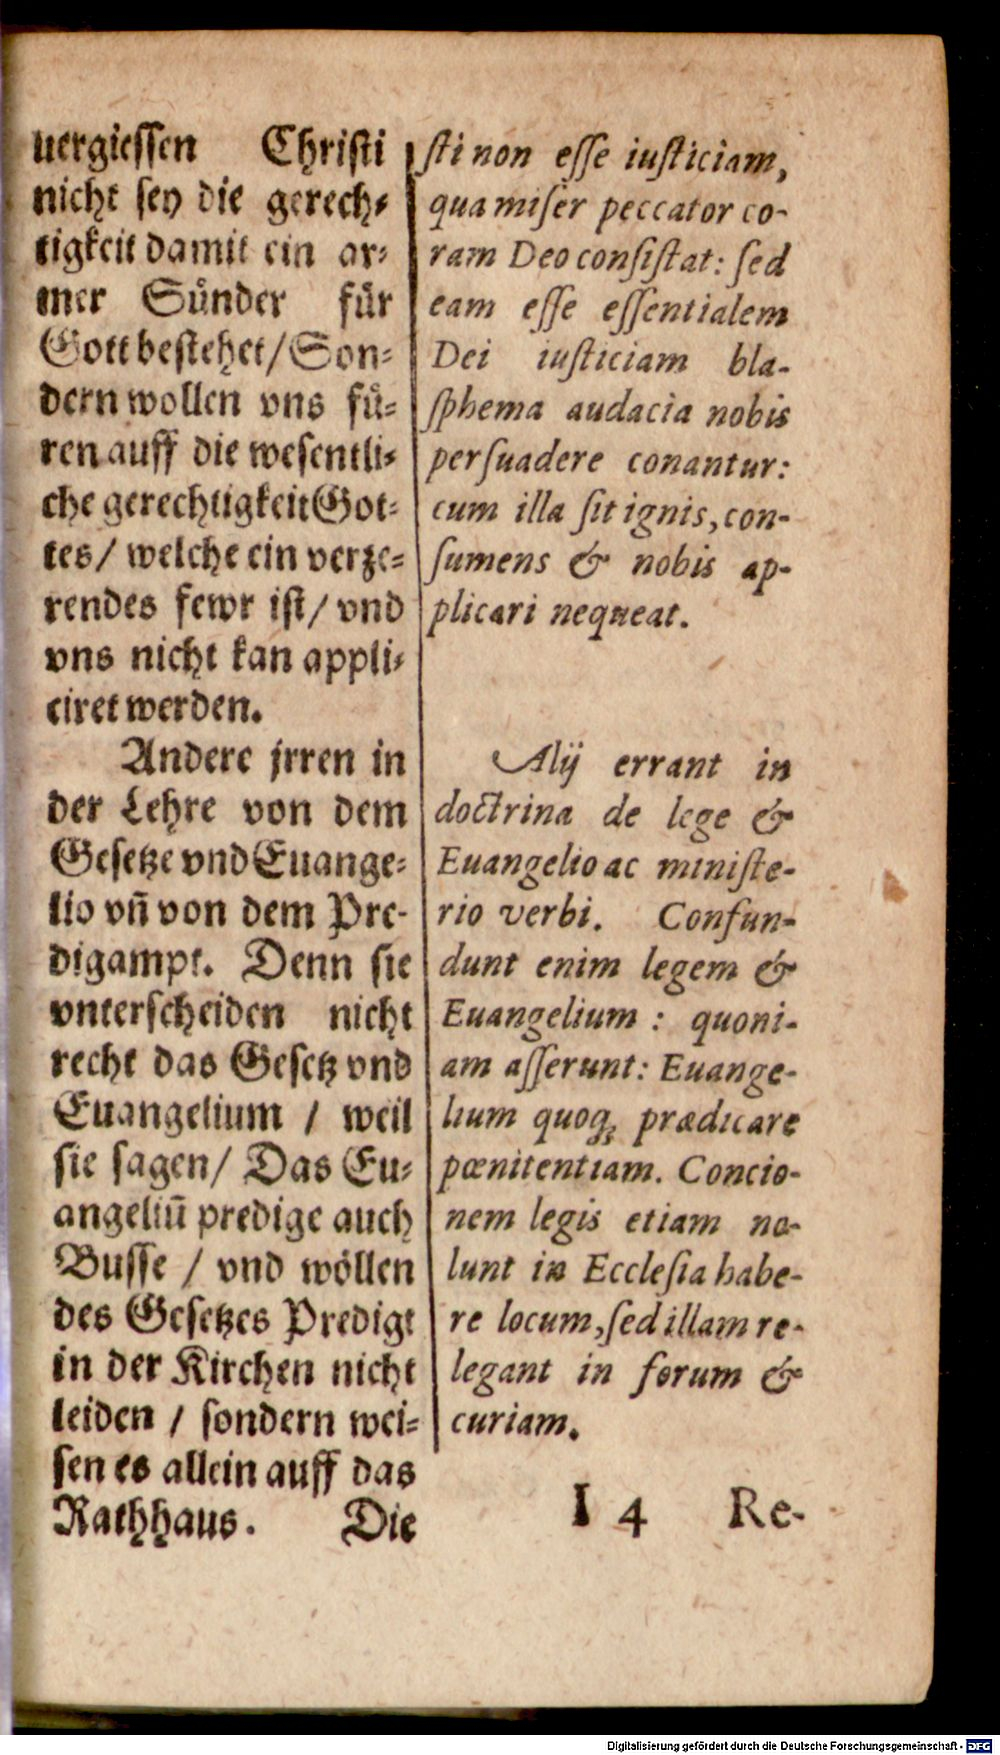 uergiessen Christi
nicht sey die gerech⸗
tigkeit damit ein ar⸗
mer Sünder für
Gott bestehet/ Son⸗
dern wollen vns fü⸗
ren auff die wesentli⸗
che gerechtigkeit Got⸗
tes/ welche ein verze⸗
rendes fewr ist/ vnd
vns nicht kan appli⸗
ciret werden.
Andere jrren in
der Lehre von dem
Gesetze vnd Euange⸗
lio vñ von dem Pre⸗
digampt. Denn sie
vnterscheiden nicht
recht das Gesetz vnd
Euangelium / weil
sie sagen/ Das Eu⸗
angeliũ predige auch
Busse / vnd wöllen
des Gesetzes Predigt
in der Kirchen nicht
leiden / sondern wei⸗
sen es allein auff das
Rathhaus. Die
ſti non eſſe iuſticiam,
qua miſer peccator co-
ram Deo conſiſtat: ſed
eam eſſe eſſentialem
Dei iuſticiam bla-
ſphema audacia nobis
perſuadere conantur:
cum illa ſit ignis, con-
ſumens & nobis ap-
plicari nequeat.
Alij errant in
doctrina de lege &
Euangelio ac miniſte-
rio verbi. Confun-
dunt enim legem &
Euangelium : quoni-
am aſſerunt: Euange-
lium quoq; prædicare
pœnitentiam. Concio-
nem legis etiam no-
lunt in Eccleſia habe-
re locum, ſed illam re-
legant in forum &
curiam.
I 4 Re-
Digitalisierung gefördert durch die Deutsche Forschungsgemeinschaft - DFG